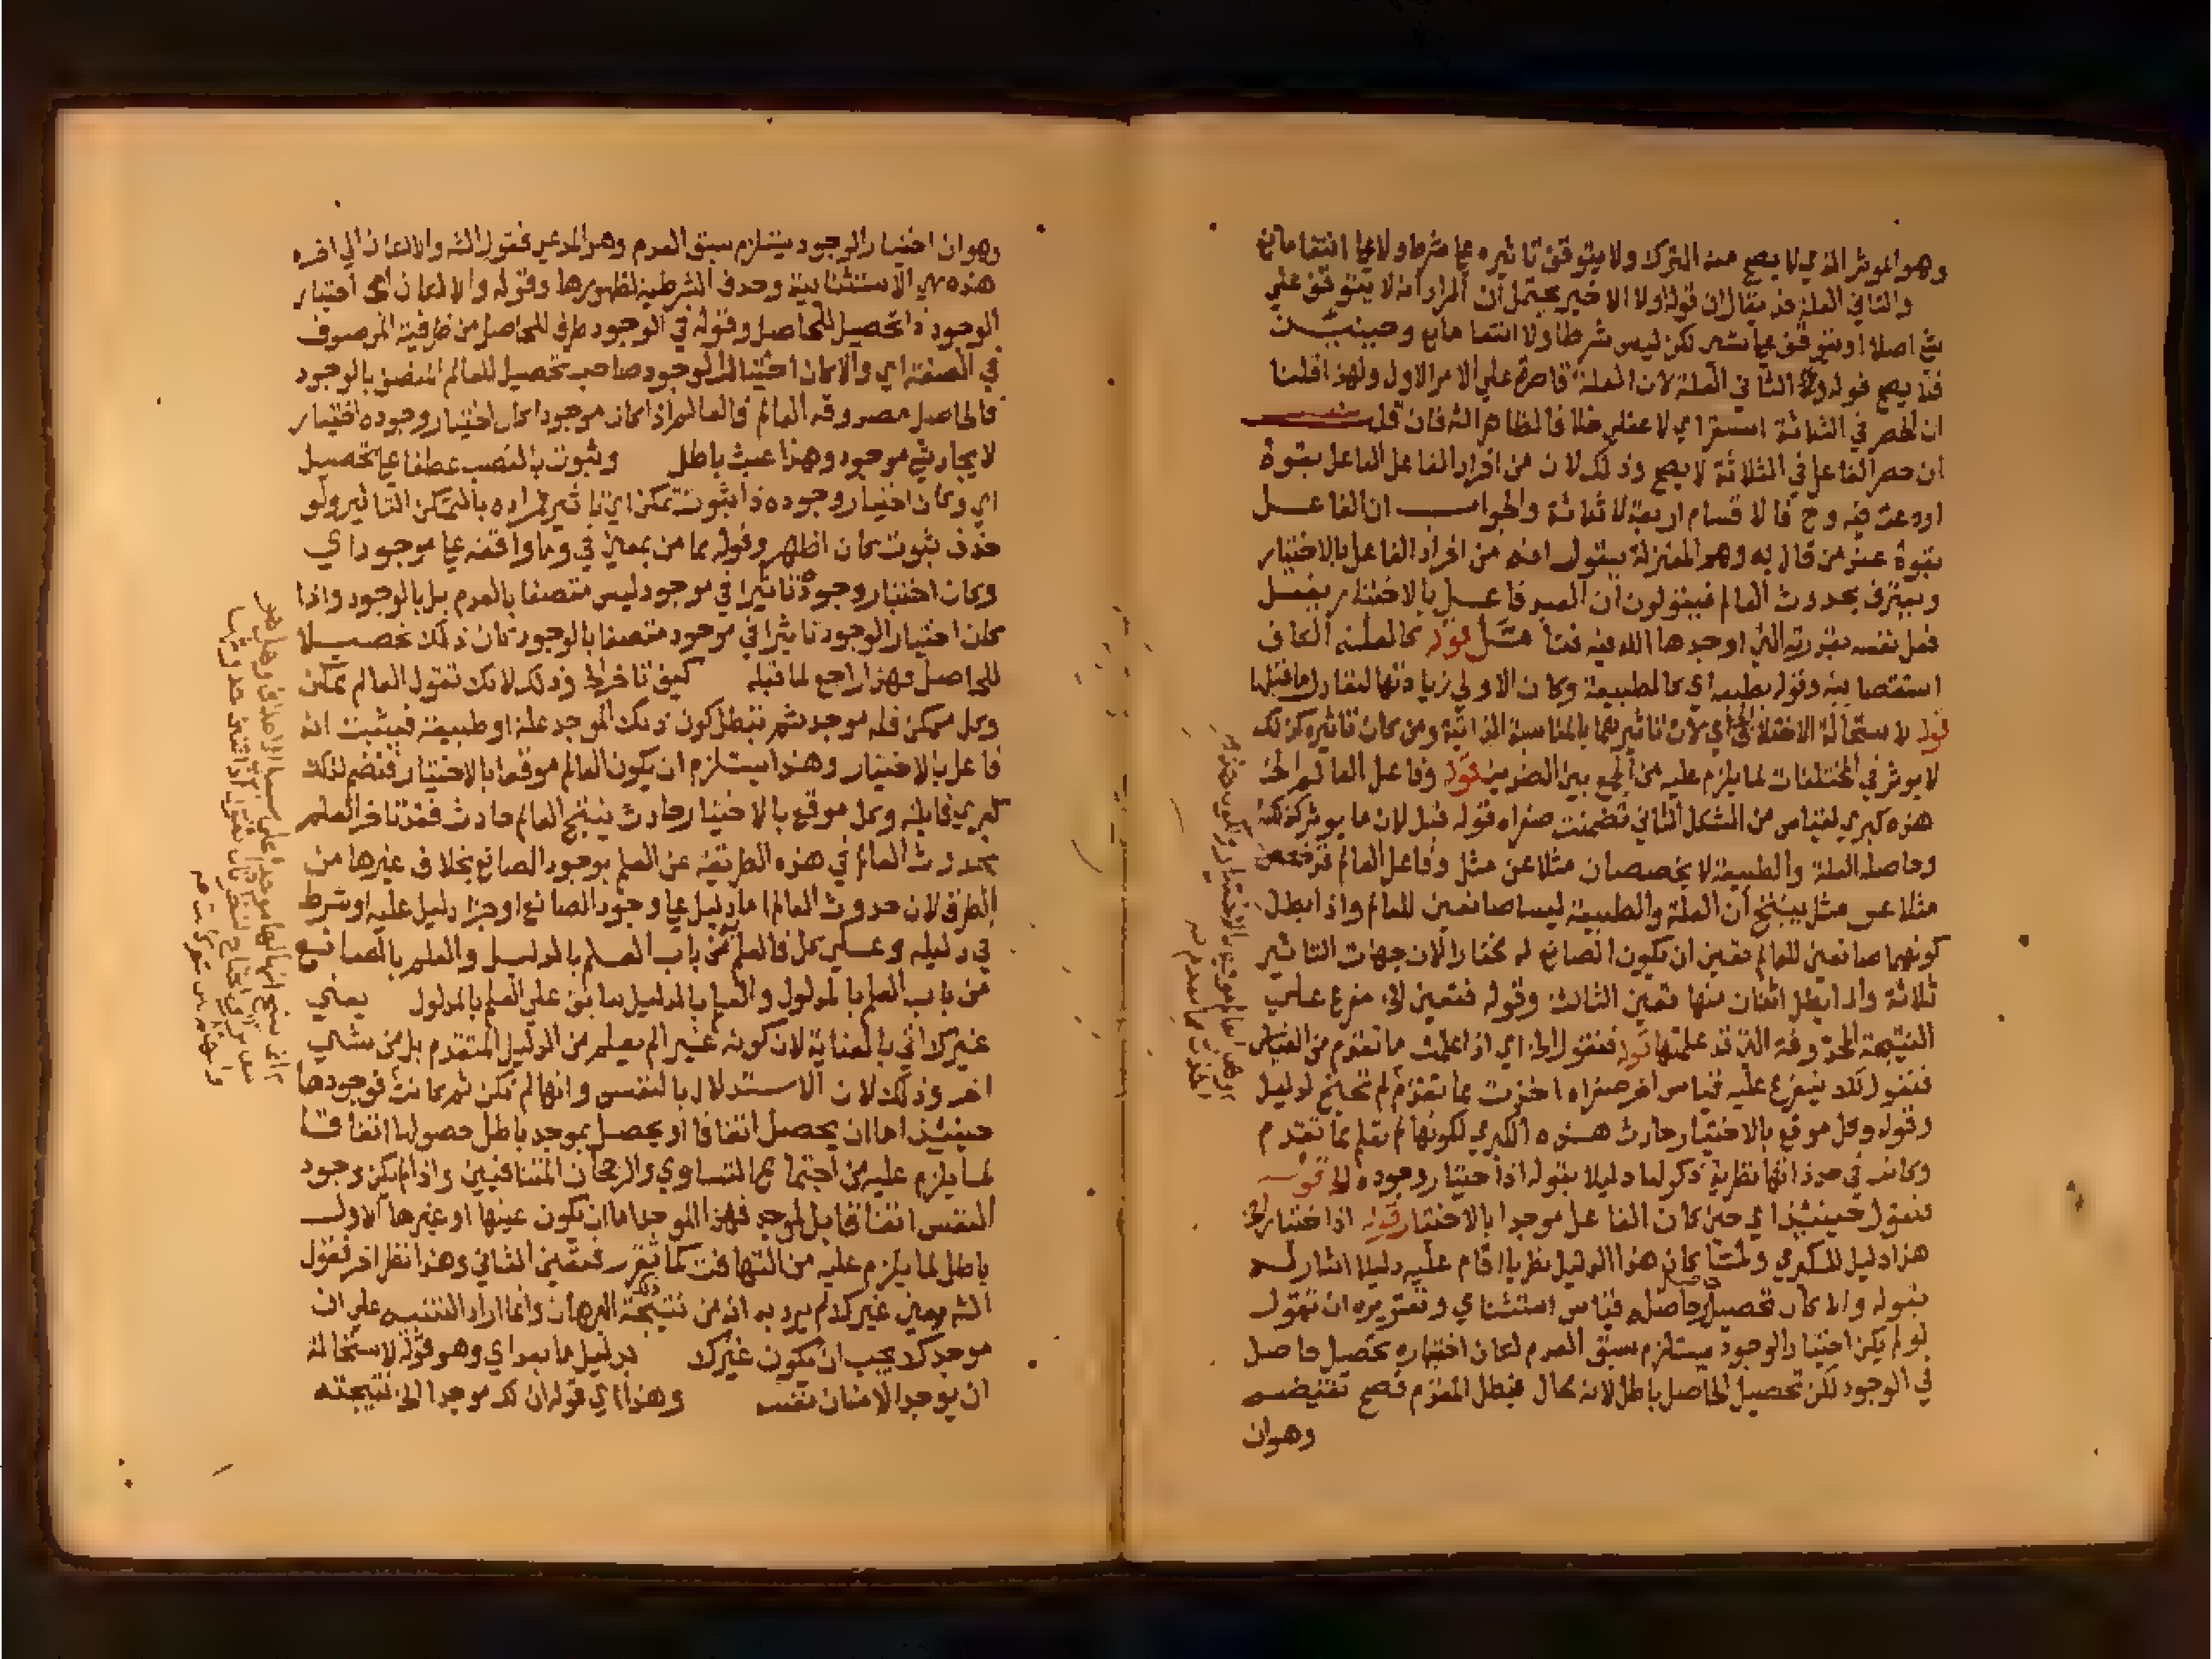 وهو الموثر الذي لا يصح منه الترك ولا يتوقف تاثيره علي شرط ولا علي انتفا مانع
والثاني العلة قد يقال ان قوله اولا الاخير يحتمل ان المراد انه لا يتوقف علي
شي اصلا او يتوقف علي شي لكن ليس شرطا ولا انتفا مانع وحينئذ
فلا يصح قوله والثاني العلة لان العلة قاصرة علي الامر الاول ولهذا قلنا
ان الحصر في الثلاثة استقراي لا عقلي خلافا لظاهر الش فان قلت
ان حصر الفاعل في الثلاثة لا يصح وذلك لان من افراد الفاعل الفاعل بقوة
اودعت فيه وح فالاقسام اربعة لا ثلاثة والجواب ان الفاعل
بقوة عند من قال به وهو المعتزلة يقول انه من افراد الفاعل بالاختيار
ويعترف بحدوث العالم فيقولون ان العبد فاعل بالاختيار يفعل
فعل نفسه بقدرته التي اوجدها الله فيه فتأمل قوله كالعلة الكاف
استقصايية وقوله بطبعه اي كالطبيعة وكان الاولي زيادتها ليعادل ما قبلها
قوله لاستحالة الاختلاف اي لان تاثيرهما بالمناسبة الذاتية ومن كان تاثيره كذلك
لا يوثر في المختلفات لما يلزم عليه من الجمع بين الضدين قوله وفاعل العالم الخ
هذه كبري لقياس من الشكل الثاني تضمنت صغراه قوله قبل لان ما يوثر كذلك
وحاصله العلة والطبيعة لا يخصصان مثلا عن مثل وفاعل العالم قد خصص
مثلا عن مثل ينتج ان العلة والطبيعة ليسا صانعين للعالم واذا بطل
كونهما صانعين للعالم تعين ان يكون الصانع له مختارا لان جهات التاثير
ثلاثة واذا بطل اثنان منها تعين الثالث وقوله فتعين الخ مفرع علي
النتيجة المحذوفة التي قد علمتها قوله فنقول الخ اي اذا علمت ما تقدم من القياس
فنقول لك يتفرع عليه قياس اخر صغراه اخذت مما تقدم لم تحتج لدليل
وقوله وكل موقع بالاختيار حادث هذه الكبري لكونها لم تعلم مما تقدم
وكانت في حد ذاتها نظرية ذكر لها دليلا بقوله اذ اختيار وجوده الخ قوله
فنقول حينئذ اي حين كان الفاعل موجدا بالاختيار قوله اذ اختيار الخ
هذا دليل للكبري ولما كان هذا الدليل نظريا اقام عليه دليلا اشار له
بقوله والا كان تحصيل حاصل قياس استثناي وتقريره ان تقول
لو لم يكن اختيار الوجود يستلزم سبق العدم لكان اختياره تحصيل حاصل
في الوجود لكن تحصيل الحاصل باطل لانه محال فبطل المقدم فصح نقيضه
وهو ان
وهو ان اختيار الوجود يستلزم سبق العدم وهو المدعي فقول الش والا لكان الي اخره
هذه هي الاستثنايية وحذف الشرطية لظهورها وقوله والا لكان اي اختيار
الوجود ذا تحصيل للحاصل وقوله في الوجود ظرف للحاصل من ظرفية الموصوف
في الصفة اي والا كان اختيار الوجود صاحب تحصيل للعالم المتصف بالوجود
فالحاصل مصدوقه العالم فالعالم اذا كان موجودا كان اختيار وجوده اختيار
لايجاد شي موجود وهذا عبث باطل وثبوت بالنصب عطفا علي تحصيل
اي وكان اختيار وجوده ذا ثبوت تمكن اي تاثير فمراده بالتمكن التاثير ولو
حذف ثبوت كان اظهر وقوله مما من بمعني في وما واقعة علي موجود اي
وكان اختيار وجوده تاثيرا في موجود ليس متصفا بالعدم بل بالوجود واذا
كان اختيار الوجود تاثيرا في موجود متصفا بالوجود كان ذلك تحصيلا
للحاصل فهذا راجع لما قبله كيف تاخر الخ وذلك لانك تقول العالم ممكن
وكل ممكن فله موجد ثم تبطل كون ذلك الموجد علة او طبيعة فيثبت انه
فاعل بالاختيار وهذا يستلزم ان يكون العالم موقعا بالاختيار فتضم لذلك
كبري قايلة وكل موقع بالاختيار حادث ينتج العالم حادث فقد تاخر العلم
بحدوث العالم في هذه الطريقة عن العلم بوجود الصانع بخلاف غيرها من
الطرق لان حدوث العالم اما دليل علي وجود الصانع او جزء دليل عليه او شرط
في دليله وعلي كل فالعلم من باب العلم بالدليل والعلم بالصانع
من باب العلم بالمدلول والعلم بالدليل سابق علي العلم بالمدلول يعني
غيرك اتي بالعناية لان كونه غير الم يعلم من الدليل المتقدم بل من شي
اخر وذلك لان الاستدلال بالنفس وانها لم تكن ثم كانت فوجودها
حينئذ اما ان يحصل اتفاقا او يحصل بموجد باطل حصولها اتفاقا
لما يلزم عليه من اجتماع التساوي والرجحان المتنافيين واذا لم يكن وجود
النفس اتفاقا بل لموجد فهذا الموجد اما ان يكون عينها او غيرها الاول
باطل لما يلزم عليه من التهافت كما تقرر فتعين الثاني وهذا نظر اخر فقول
الش يعني غيرك لم يرد به انه من نتيجة ذلك البرهان وانما اراد التنبيه علي ان
موجدك يجب ان يكون غيرك بدليل ما بعد اي وهو قوله لاستحالة
ان يوجد الانسان نفسه وهذا اي قوله ان لك موجدا الخ نتيجته